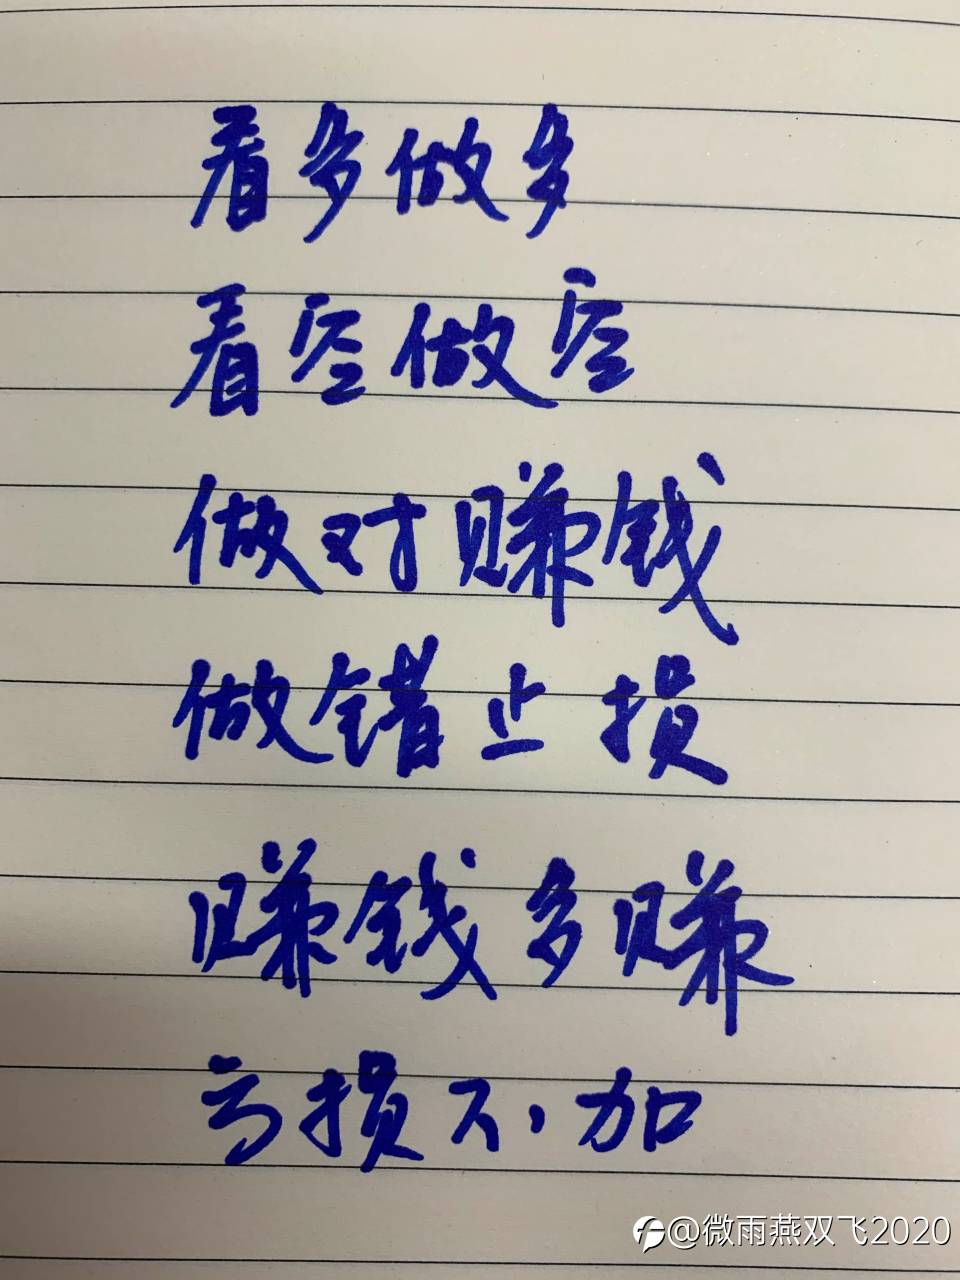 看多做多
看空做空
做对赚钱
做错止损
赚钱多赚
亏损不加
@微雨燕双飞2020